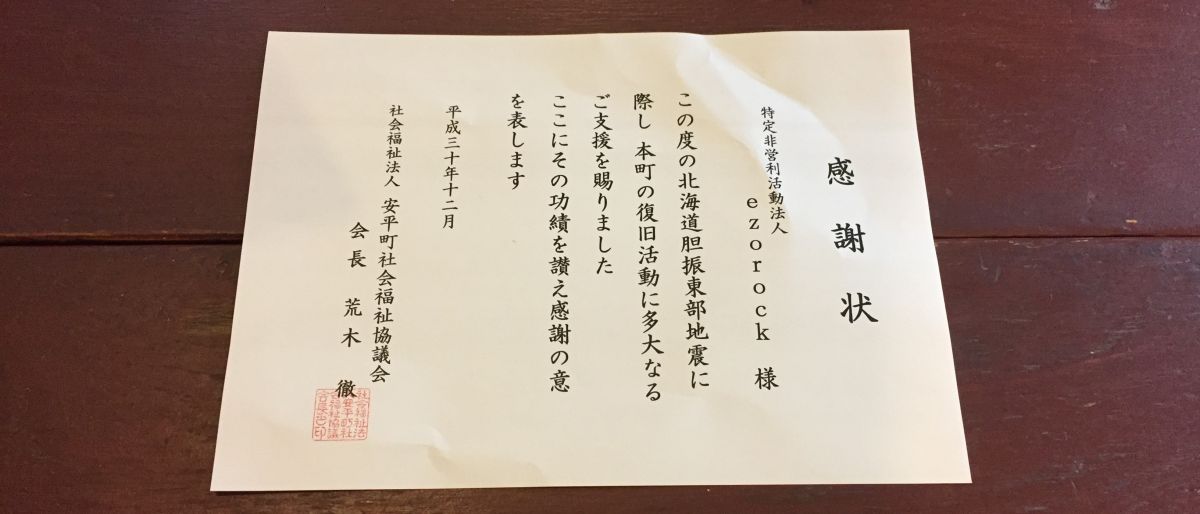 感謝状
特定非営利活動法人
ezorock 様
この度の北海道胆振東部地震に
際し 本町の復旧活動に多大なる
ご支援を賜りました
ここにその功績を讃え感謝の意
を表します
平成三十年十二月
社会福祉法人 安平町社会福祉協議会
会長 荒木 徹
社会福祉法
人安平町社
会福祉協議
会長之印